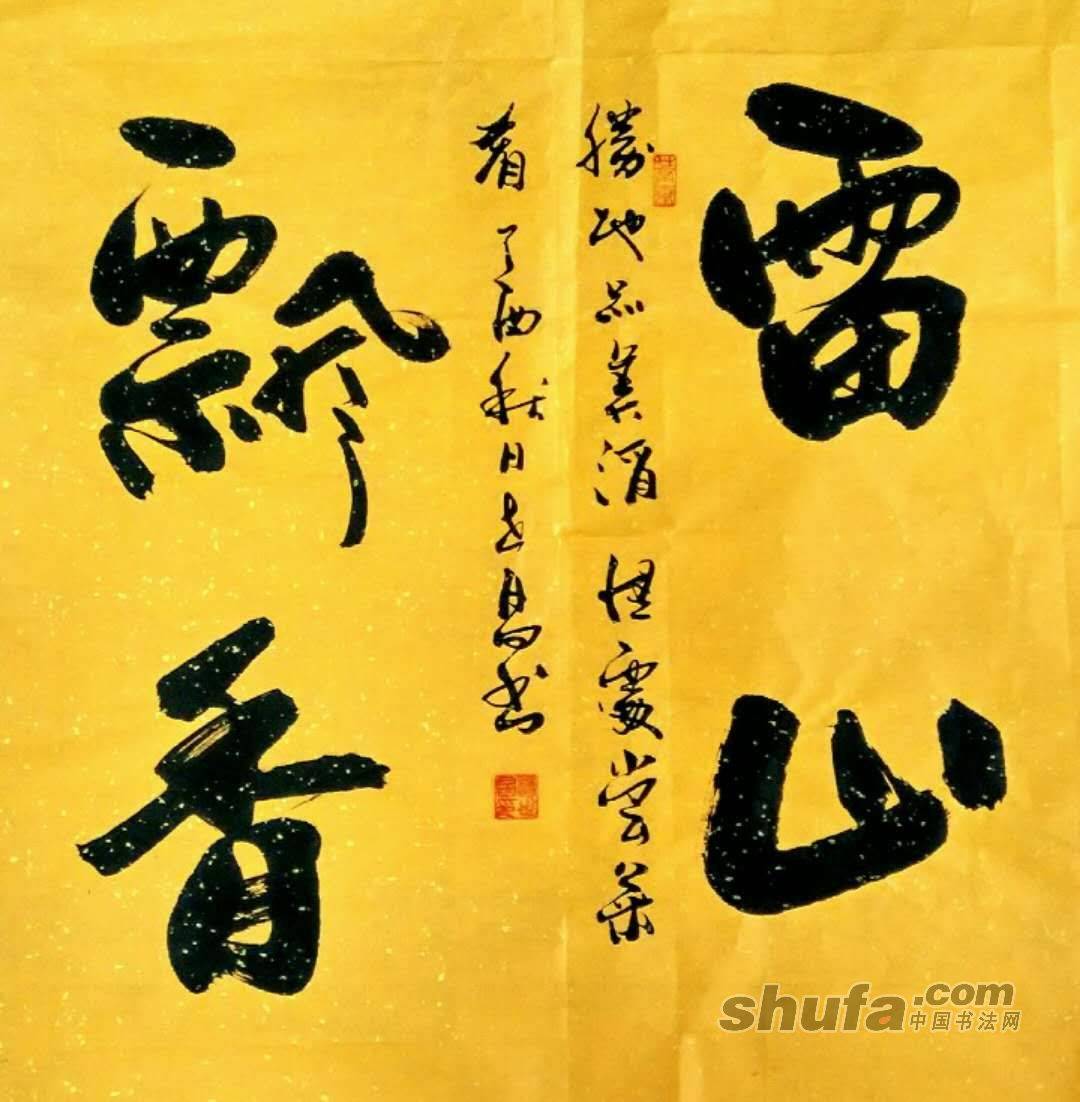 雷山
飘香
勝地品美酒 但愛尝美
肴 丁酉秋日 书
shufa.com
中国书法网